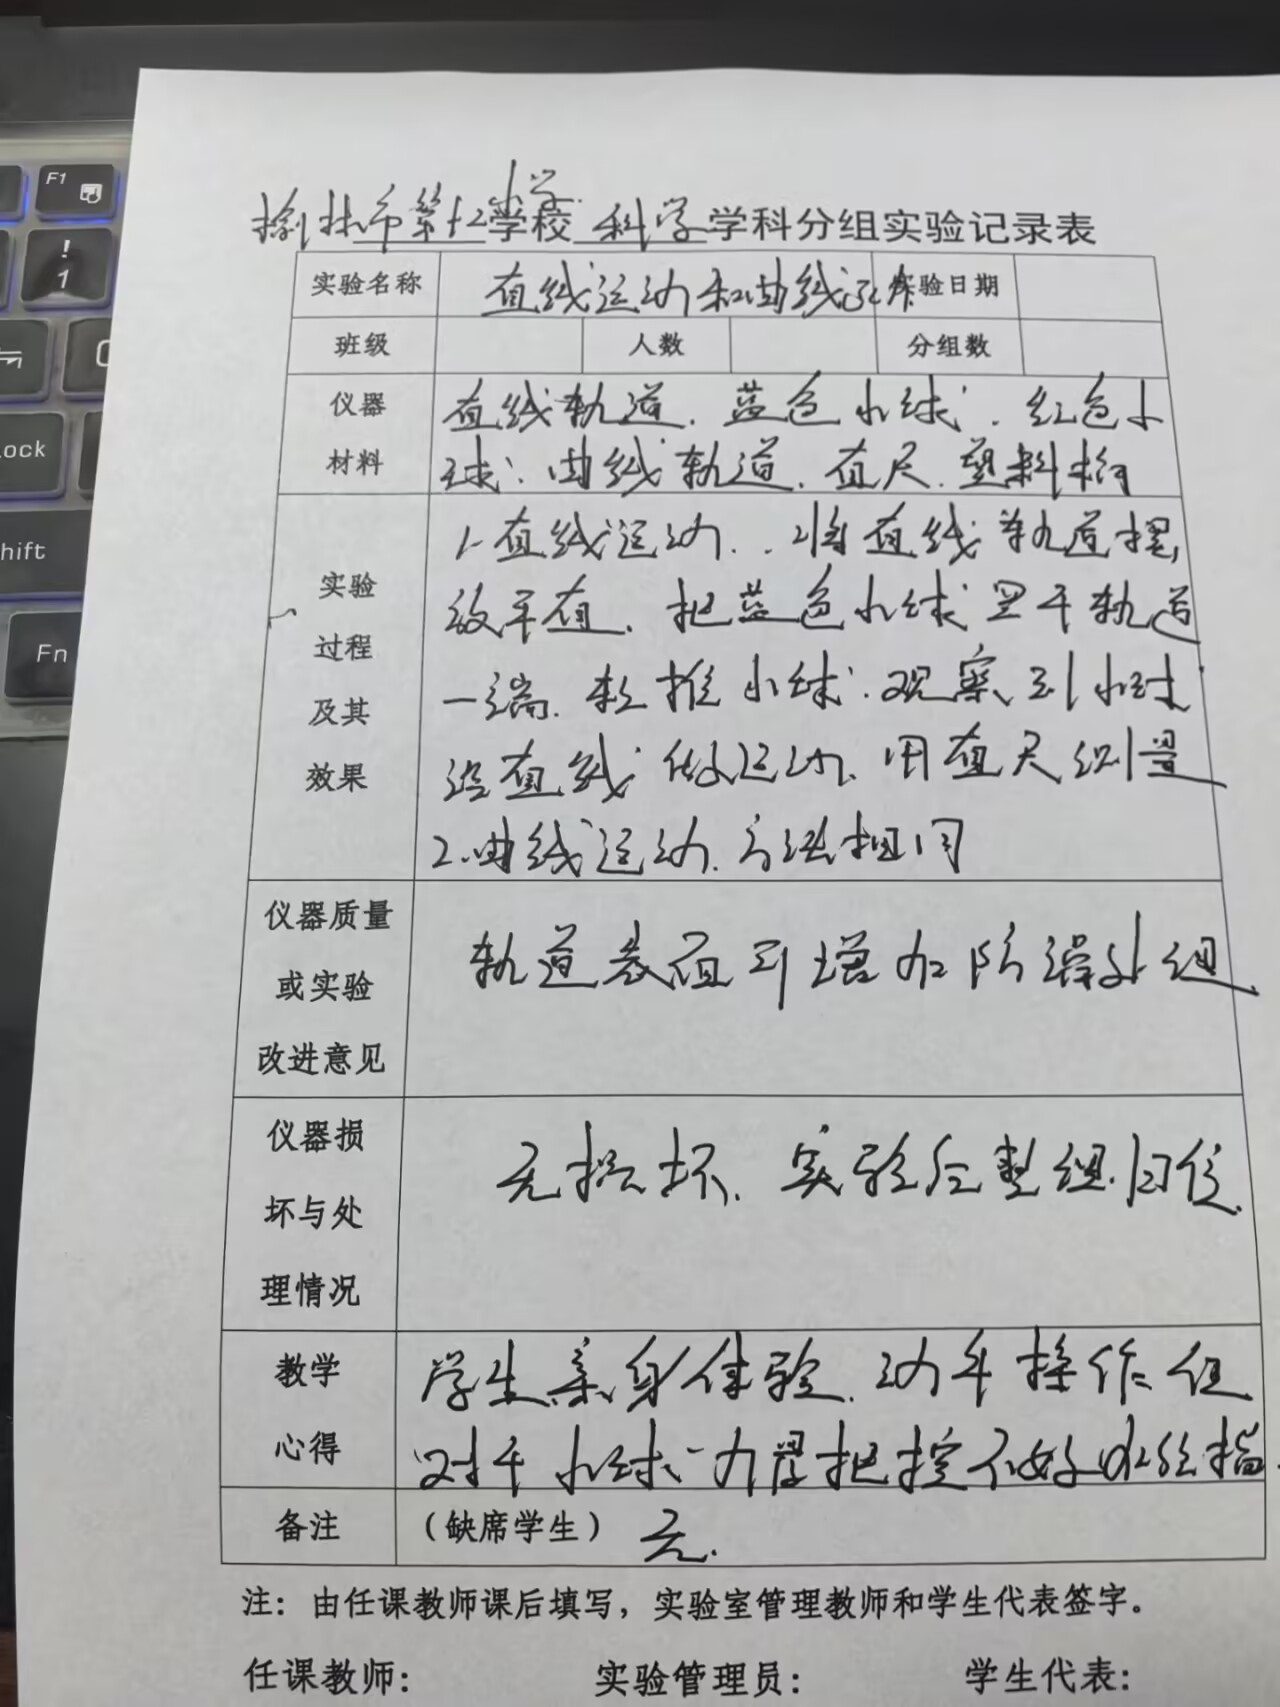 F1
!
1
Lock
Shift
Fn
小学
榆林市第十二学校 科学 学科分组实验记录表
实验名称 直线运动和曲线运动 实验日期
班级 人数 分组数
仪器 直线轨道、蓝色小球、红色小
材料 球、曲线轨道、直尺、塑料桶
1、直线运动、将直线轨道摆
实验 放平直、把蓝色小球置于轨道
过程 一端、轻推小球、观察到小球
及其 沿直线做运动、用直尺测量
效果 2、曲线运动、方法相同
仪器质量 轨道表面可增加防滑处理
或实验
改进意见
仪器损 无损坏、实验后整理归位.
坏与处
理情况
教学 学生亲身体验、动手操作但
心得 对于小球力度把控不好
备注 （缺席学生） 无.
注：由任课教师课后填写，实验室管理教师和学生代表签字。
任课教师： 实验管理员： 学生代表：